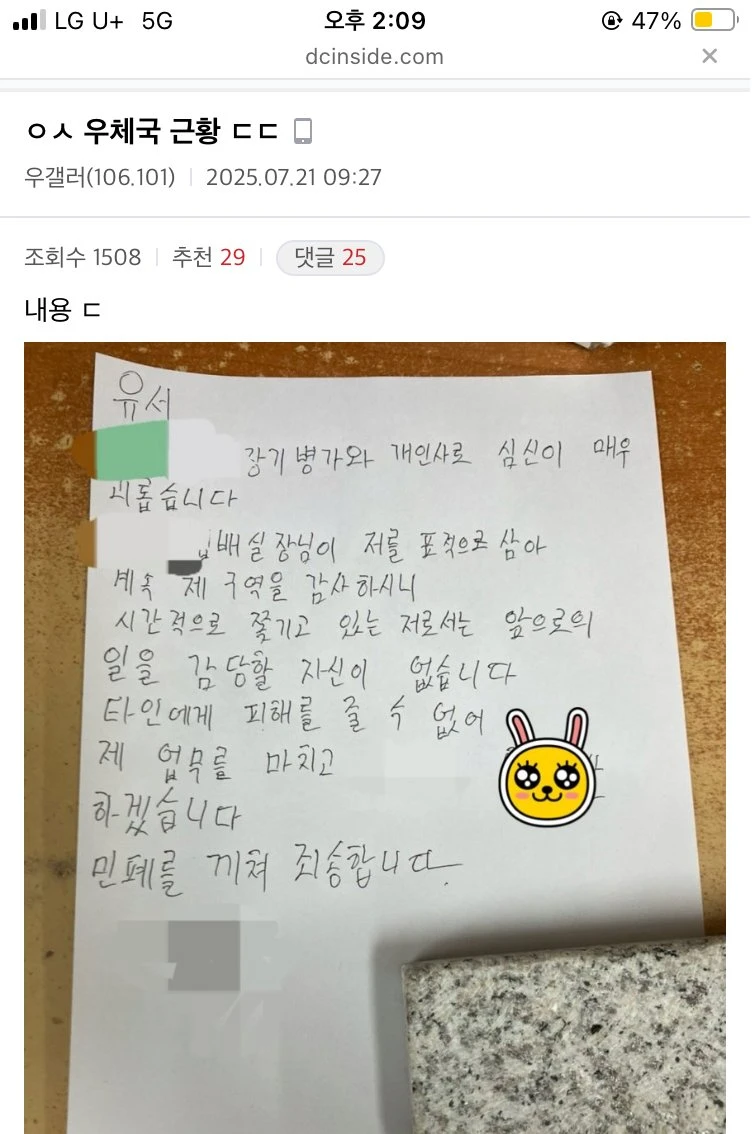 LG U+ 5G 오후 2:09 47%
dcinside.com ×
ㅇㅅ 우체국 근황 ㄷㄷ
우갤러(106.101) 2025.07.21 09:27
조회수 1508 추천 29 댓글 25
내용 ㄷ
유서
장기 병가와 개인사로 심신이 매우
괴롭습니다
배실장님이 저를 표적으로 삼아
계속 제 구역을 감사하시니
시간적으로 쫓기고 있는 저로서는 앞으로의
일을 감당할 자신이 없습니다
타인에게 피해를 줄 수 없어
제 업무를 마치고
하겠습니다
민폐를 끼쳐 죄송합니다.